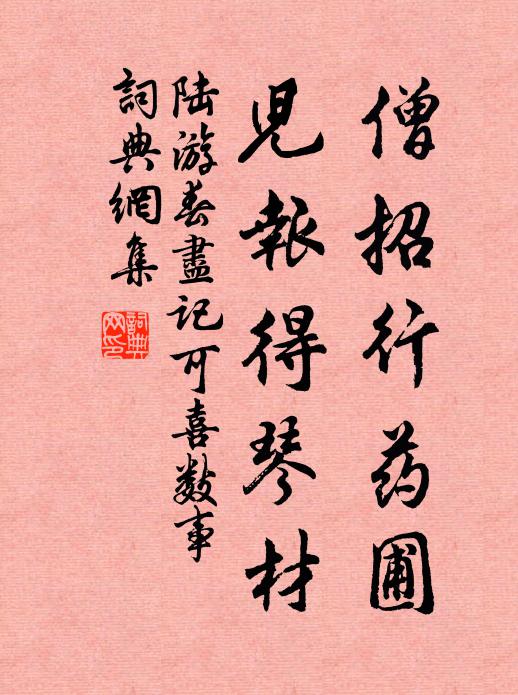 僧招行药圃
児報得琴材
陆游春盡记可喜数事
詞典網集
詞典網印